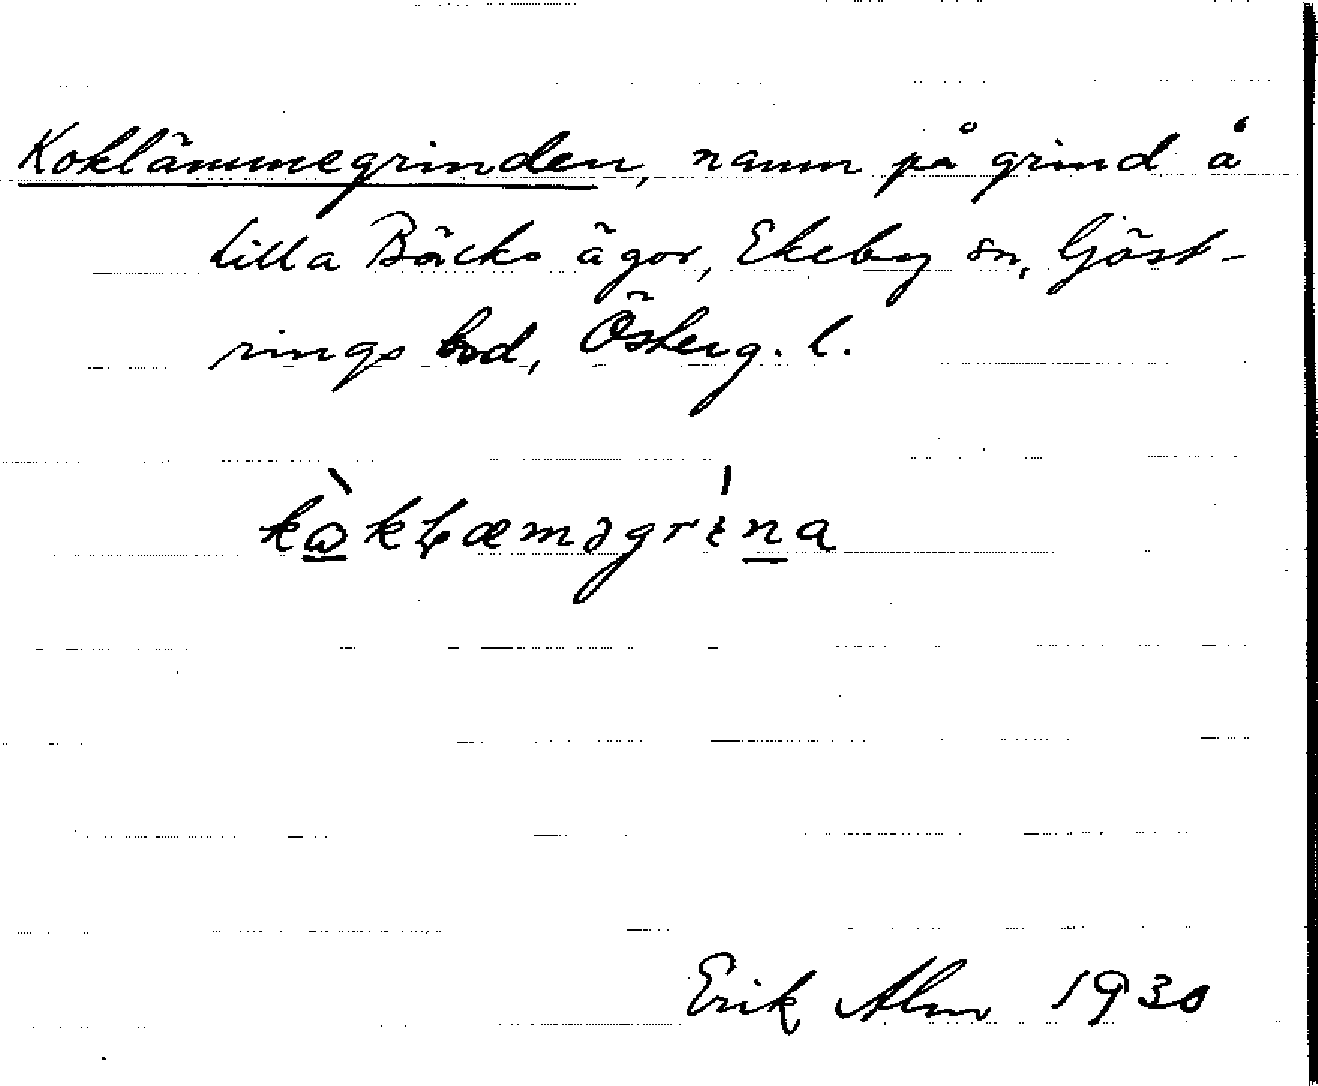 Koklämmegrinden, namn på grind å
Lilla Bäcks ägor, Ekeby sn, Göst-
rings hd, Österg. l.
kὼkɫæməgrɩ́na
Erik Alm 1930